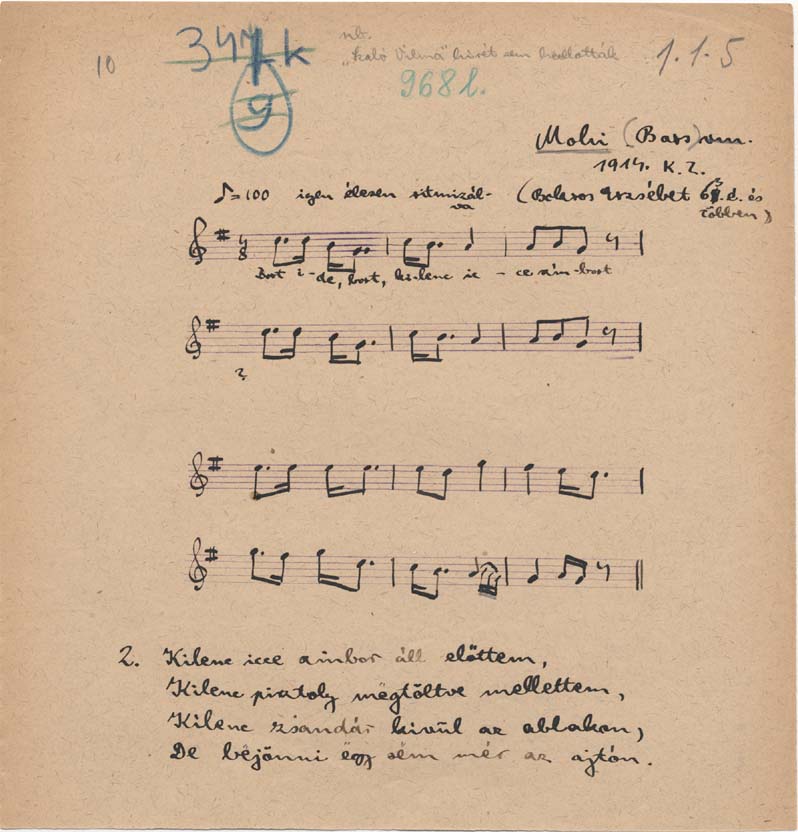 10
347k
nb.
9
968 l.
1.1.5
Mohi (Bars) vm.
1914. K. Z.
♪=100 igen élesen ritmizál-
va
Erzsébet
é. és
többen)
4
8
Bort i-de, bort, ki-lenc ic - ce ám-bort
2. Kilenc icce ámbor áll előttem,
Kilenc pisztoly mëgtöltve mellettem,
Kilenc zsandár kivül az ablakon,
De béjönni ëgy sëm mér az ajtón.